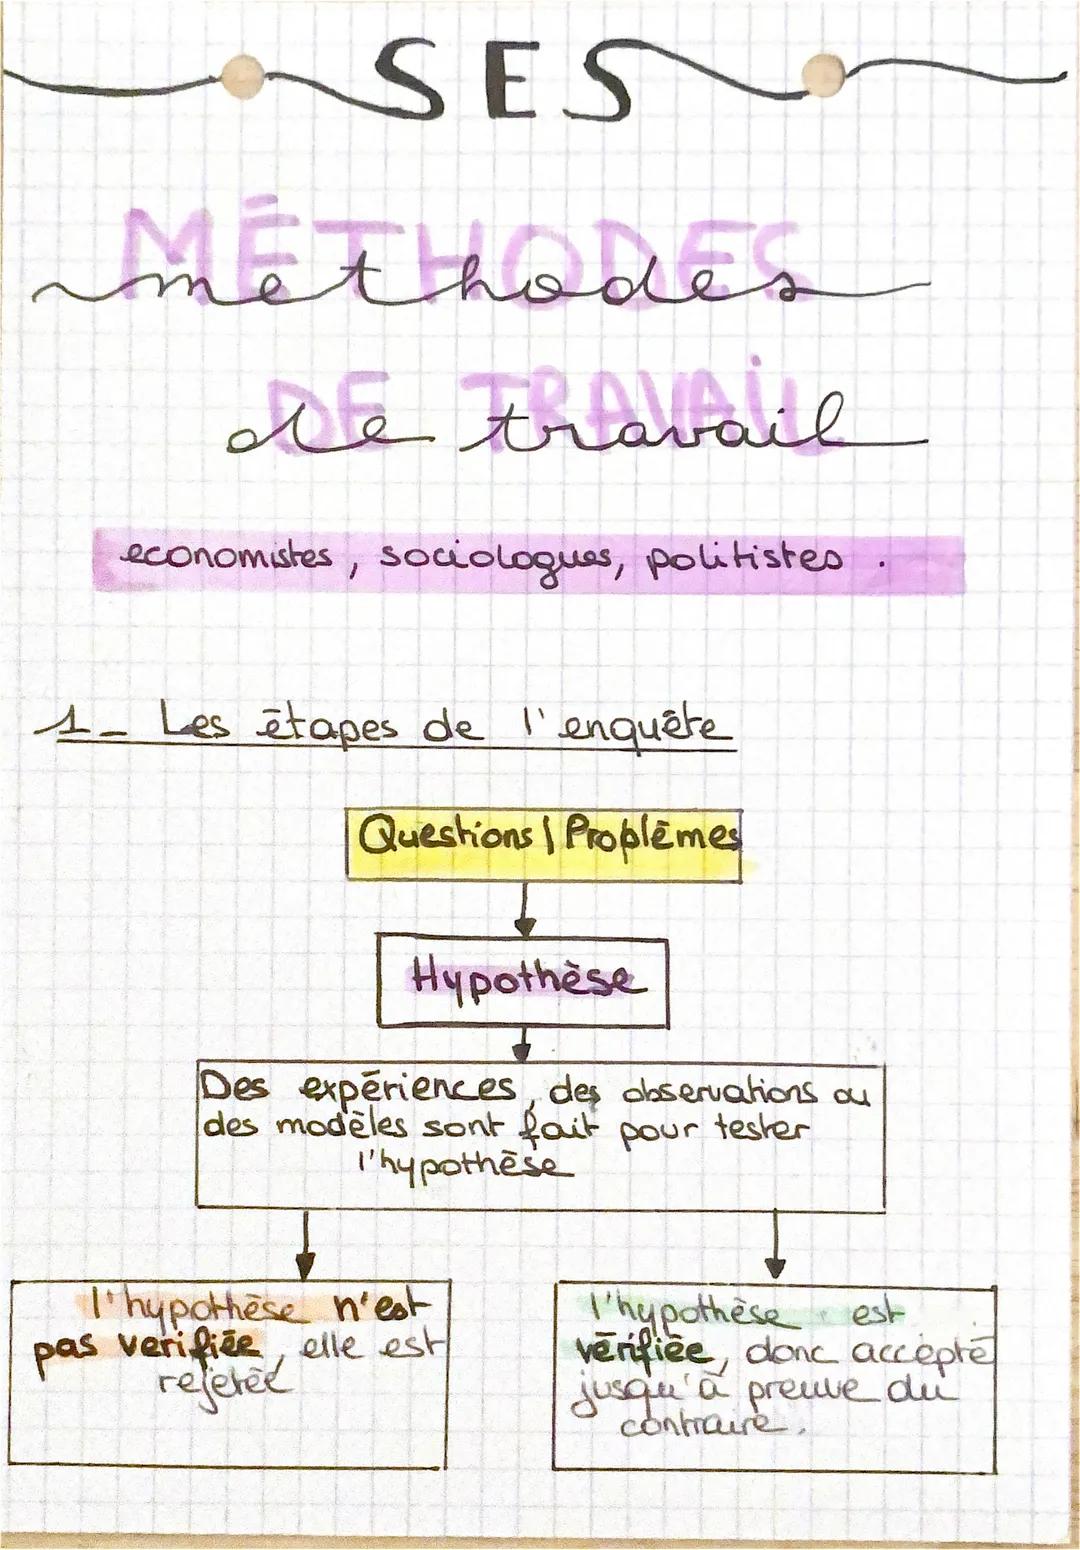 SES
MÉTHODES
methodes
DE TRAVAIL
de travail
economistes, sociologues, politistes.
1_ Les étapes de l'enquête
Questions | Problèmes
Hypothèse
Des expériences, des observations ou
des modèles sont fait pour tester
l'hypothèse
l'hypothèse n'est
pas verifiée, elle est
rejetée
l'hypothèse est
vérifiée, donc accepté
jusqu'à preuve du
contraire.